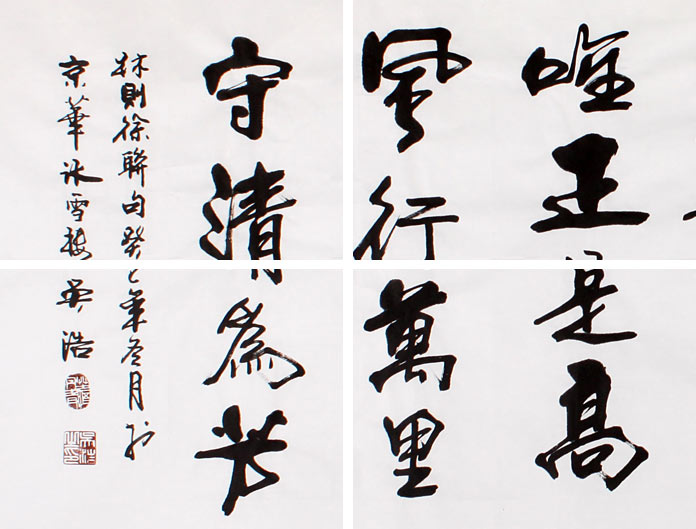 唯正是高
風行萬里
守清為
林則徐聯句癸巳年冬月於
京華冰雪樓吳浩